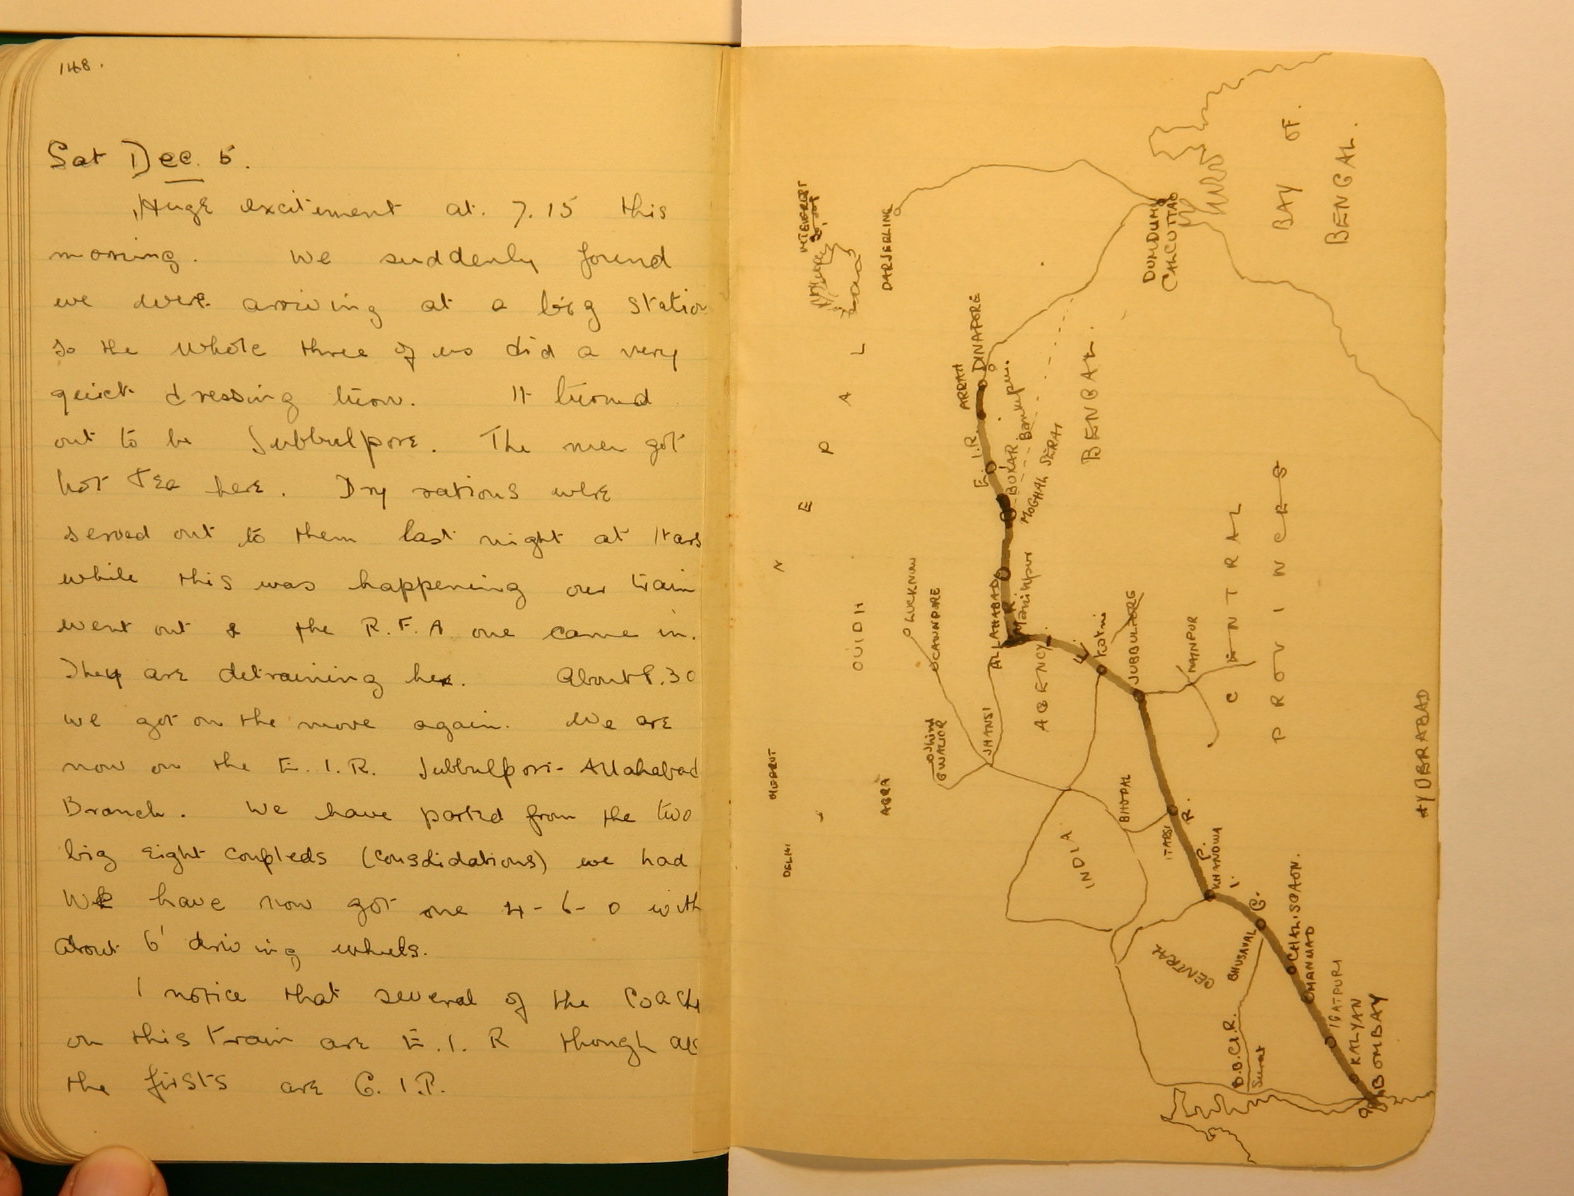 148.
Sat Dec. 5.
Huge excitement at. 7.15 this
morning. We suddenly found
we were arriving at a big station
so the whole three of us did a very
quick dressing turn. It turned
out to be Jubbulpore. The men got
hot tea here. Dry rations were
served out to them last night at Itars
while this was happening our train
went out & the R.F.A one came in.
They are detraining here. About 8.30
we got on the move again. We are
now on the E.I.R. Jubbulpore-Allahabad
Branch. We have parted from the two
big eight coupleds (consolidations) we had
We have now got one 4-6-0 with
about 6' driving wheels.
I notice that several of the coache
on this train are E.I.R though all
the firsts are G.I.P.
BAY OF
BENGAL.
MT EVEREST
DARJEELING
DUMDUM
CALCUTTA
NEPAL
E.I.R.
ARRAH
DINAPORE
BUXAR
Bankipur.
MOGHAL SERAI
BENGAL.
OUIDH
LUCKNOW
CAWNPORE
ALLAHABAD
Manikpur
AGENCY
Katni
JUBBULPORE
NAINPUR
CENTRAL
PROVINCES
MEERUT
DELHI
AGRA
GWALIOR
JHANSI
INDIA
BHOPAL
ITARSI
KHANDWA
G.I.P.R.
CENTRAL
BHUSAVAL
CHALISGAON.
MANMAD
IGATPURI
KALYAN
BOMBAY
B.B.C.I.R.
Surat
HYDERABAD